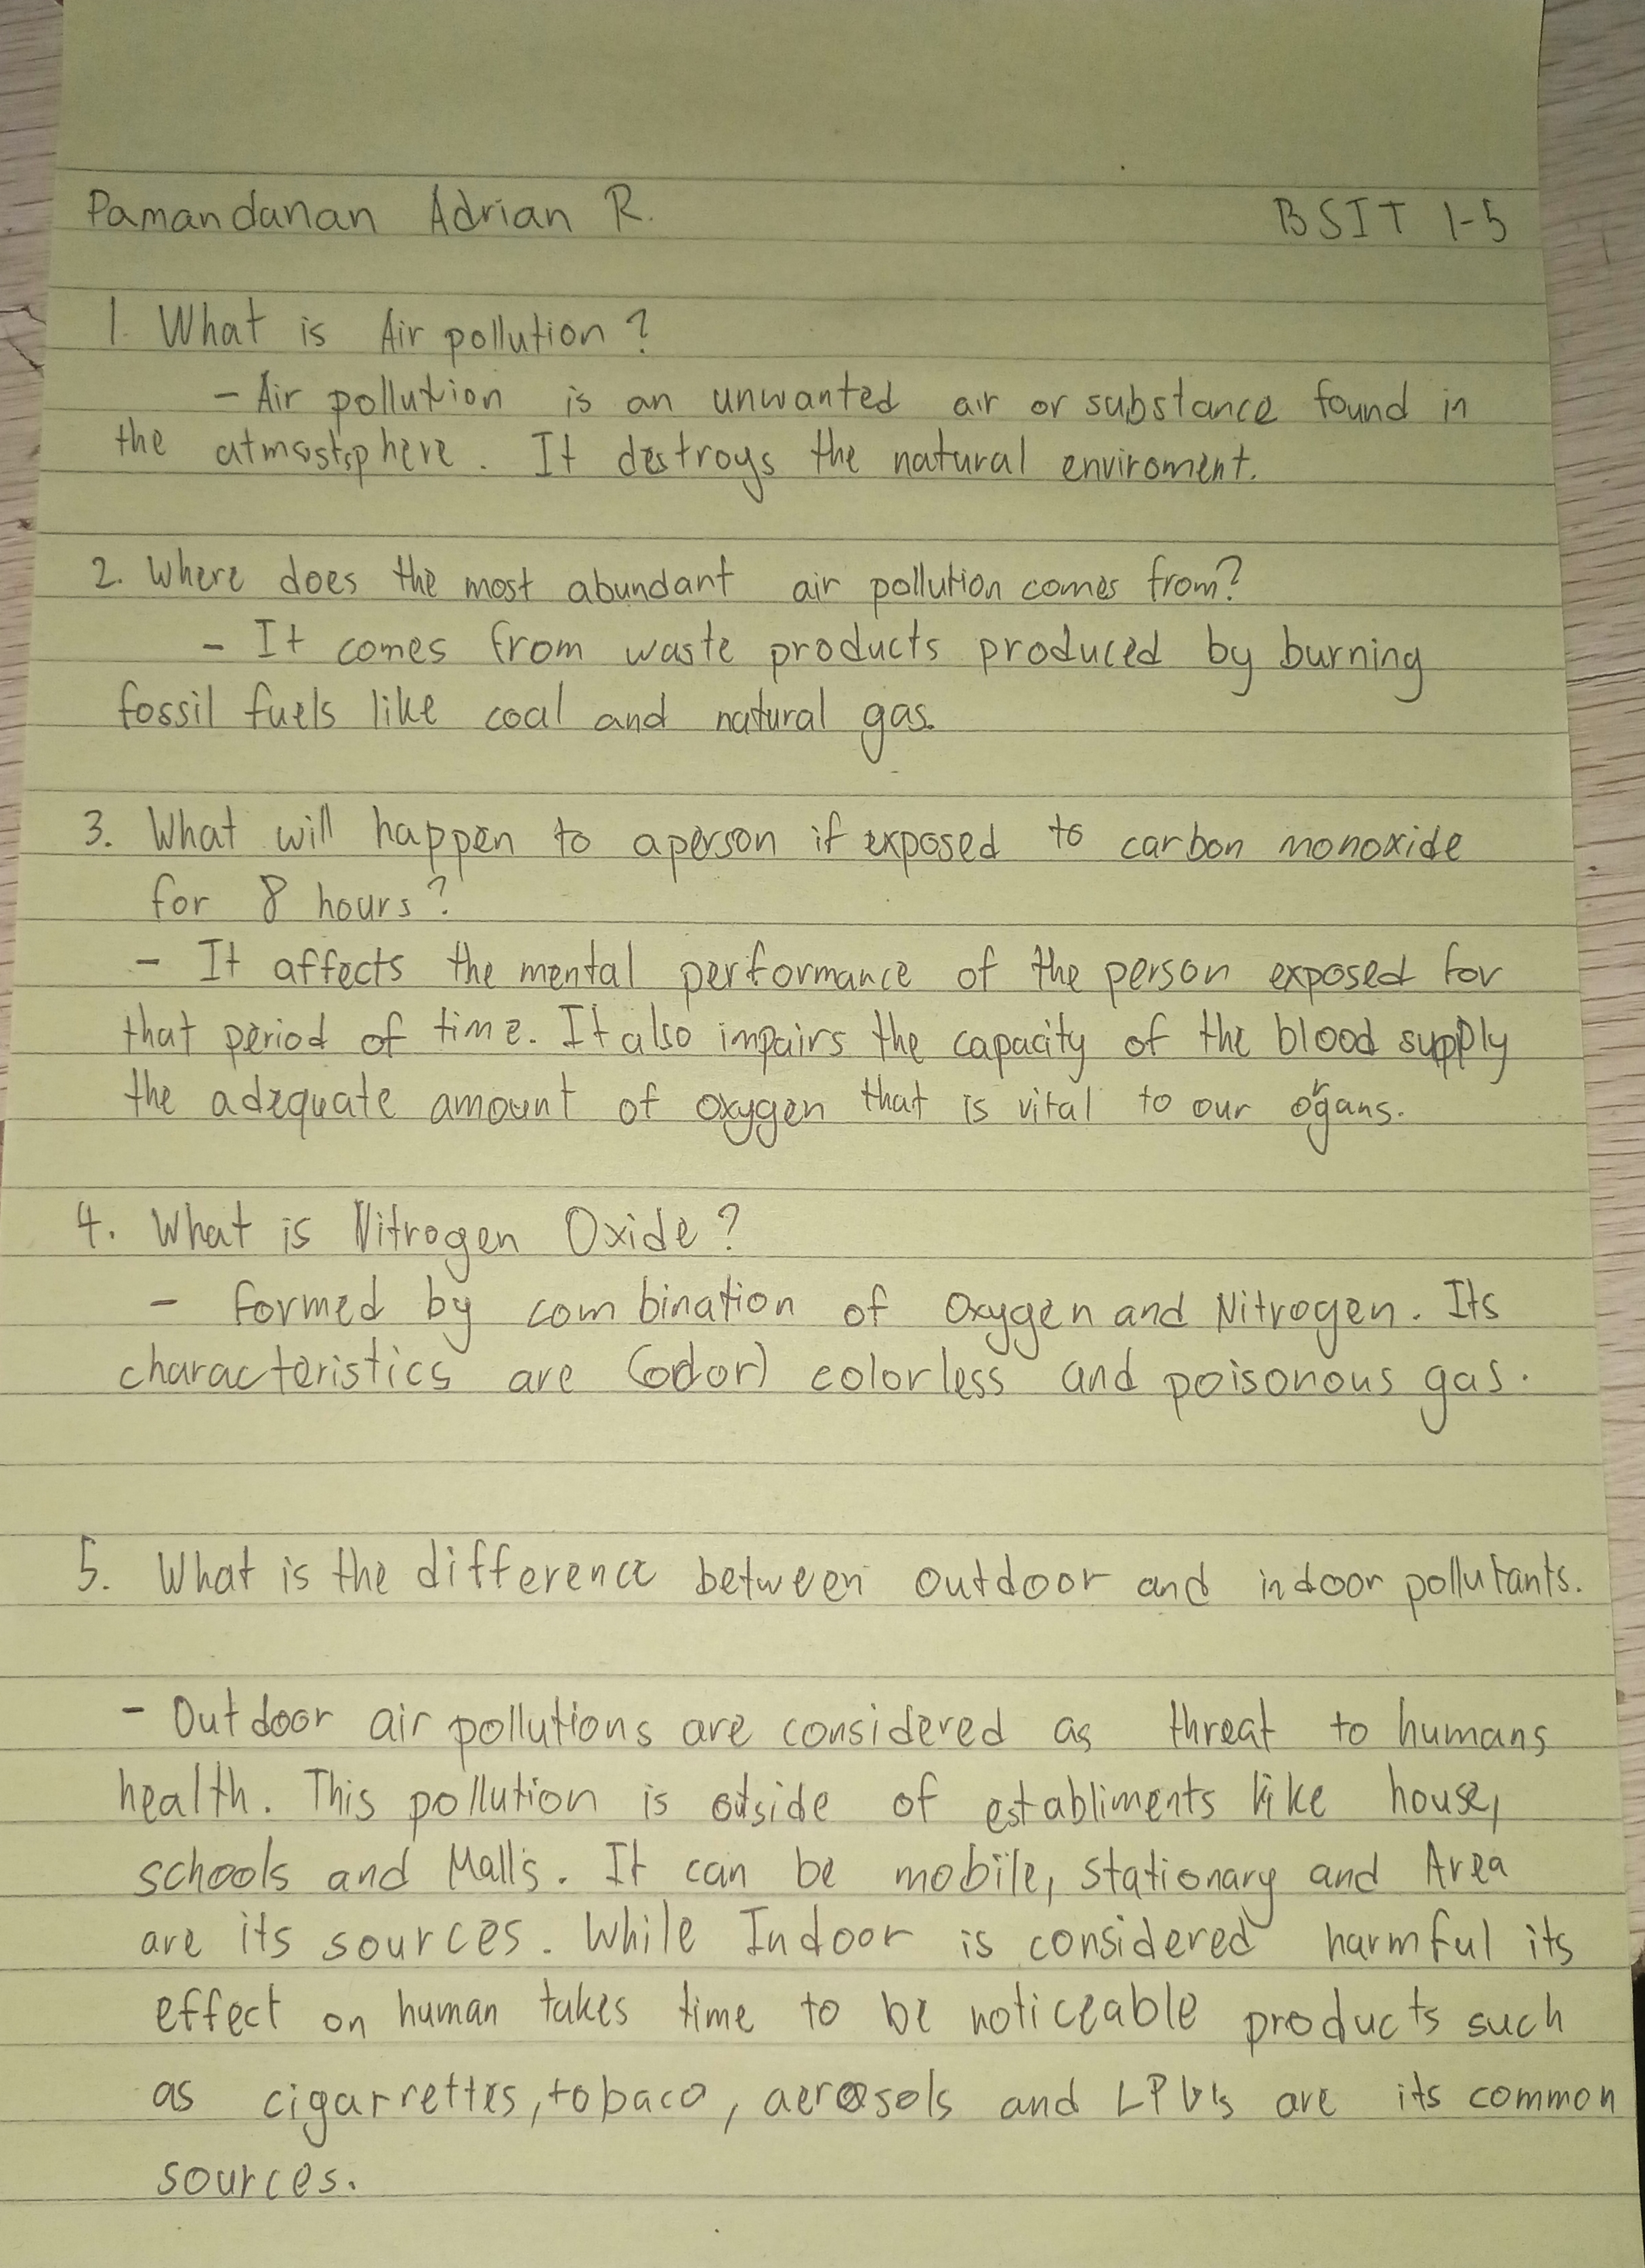 Pamandanan Adrian R. BSIT 1-5
1. What is Air pollution?
- Air pollution is an unwanted air or substance found in
the atmostsphere. It destroys the natural enviroment.
2. Where does the most abundant air pollution comes from?
- It comes from waste products produced by burning
fossil fuels like coal and natural gas.
3. What will happen to aperson if exposed to carbon monoxide
for 8 hours?
- It affects the mental performance of the person exposed for
that period of time. It also impairs the capacity of the blood supply
the adequate amount of oxygen that is vital to our organs.
4. What is Nitrogen Oxide?
- formed by combination of Oxygen and Nitrogen. Its
characteristics are (odor) colorless and poisonous gas.
5. What is the difference between outdoor and indoor pollutants.
- Outdoor air pollutions are considered as threat to humans
health. This pollution is outside of establiments like house,
schools and Malls. It can be mobile, stationary and Area
are its sources. While Indoor is considered harmful its
effect on human takes time to be noticeable products such
as cigarrettes, tobaco, aerosols and are its common
sources.